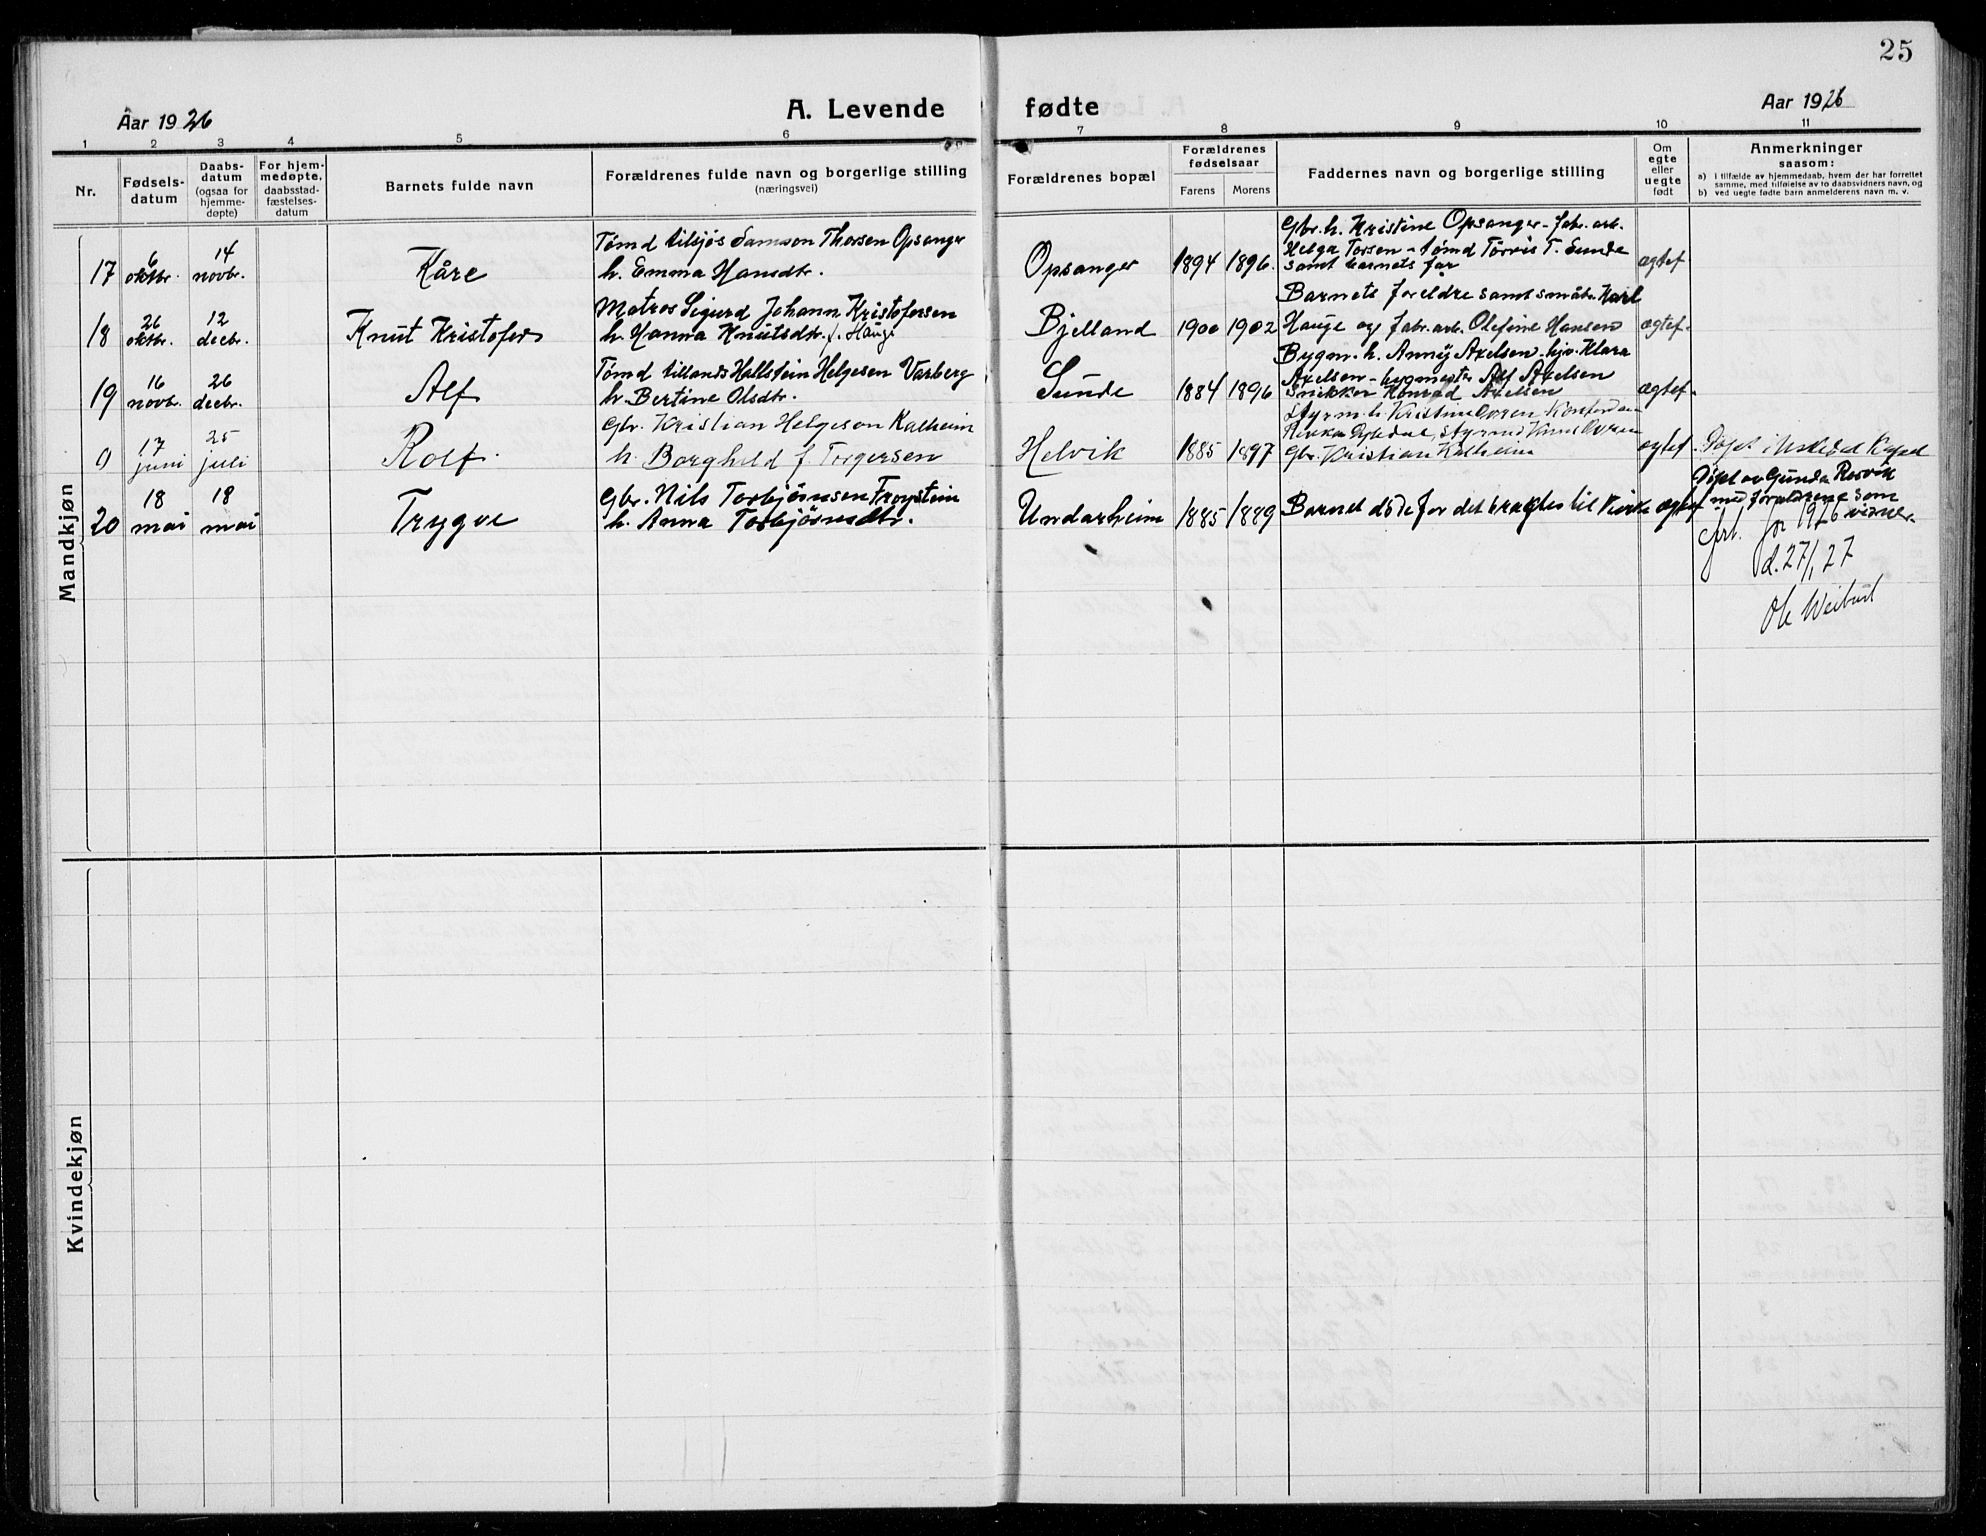 25
Aar 1926
A. Levende fødte
Aar 1926
1 2 3 4 5 6 7 8 9 10 11
Nr.
Fødsels-
datum
Daabs-
datum
(ogsaa for
hjemme-
døpte)
For hjem-
medøpte,
daabsstad-
fæstelses-
datum
Barnets fulde navn
Forældrenes fulde navn og borgerlige stilling
(næringsvei)
Forældrenes bopæl
Forældrenes
fødselsaar
Farens Morens
Faddernes navn og borgerlige stilling
Om
egte
eller
uegte
født
Anmerkninger
saasom:
a) i tilfælde av hjemmedaab, hvem der har forrettet
samme, med tilføielse av to daabsvidners navn, og
b) ved uegte fødte barn anmelderens navn m. v.
Mandkjøn
17
6
oktbr.
14
novbr.
Kåre
Tømd tilsjøs Samson Thorsen Opsanger
h. Emma Hansdtr.
Opsanger
1894 1896.
Gbr. h. Kristine Opsanger - fabr. arb.
Helga Torsen - tømd Torris T. Sunde
samt barnets far
ægtef
18
26
oktbr.
12
decbr.
Knut Kristofer
Matros Sigurd Johann Kristofersen
h. Hanna Knutsdtr. f. Hauge
Bjelland
1900 1902
Barnets foreldre samt småbr. Karl
Hauge og fabr. arb. Olefine Hansen
ægtef.
19
16
novbr.
26
decbr.
Alf
Tømd tillands Hallstein Helgesen Varberg
h. Bertine Olsdtr.
Sunde
1884 1896
Bygm. h. Anny Axelsen - hjv. Klara
Axelsen - bygmester Alf Axelsen
Snikker Konrad Axelsen
ægtef.
0
17
juni
25
juli
Rolf.
Gbr. Kristian Helgeson Kalheim
h. Borghild f. Torgersen
Helvik
1885 1897
Styrm. h. Kristine
Styrmd Knut
Gbr. Kristian Kalheim
egtef.
Døpt i
20
18
mai
18
mai
Trygve
Gbr. Nils Torbjørnsen Frøystein
h. Anna Torbjørnsdtr.
Undarheim
1885 1889
Barnet døde før det bragtes til kirke
ægtef
Døpt av Gunda Røsvik
med forældrene som
vidner.
for 1926
d. 27/1 27
Kvindekjøn